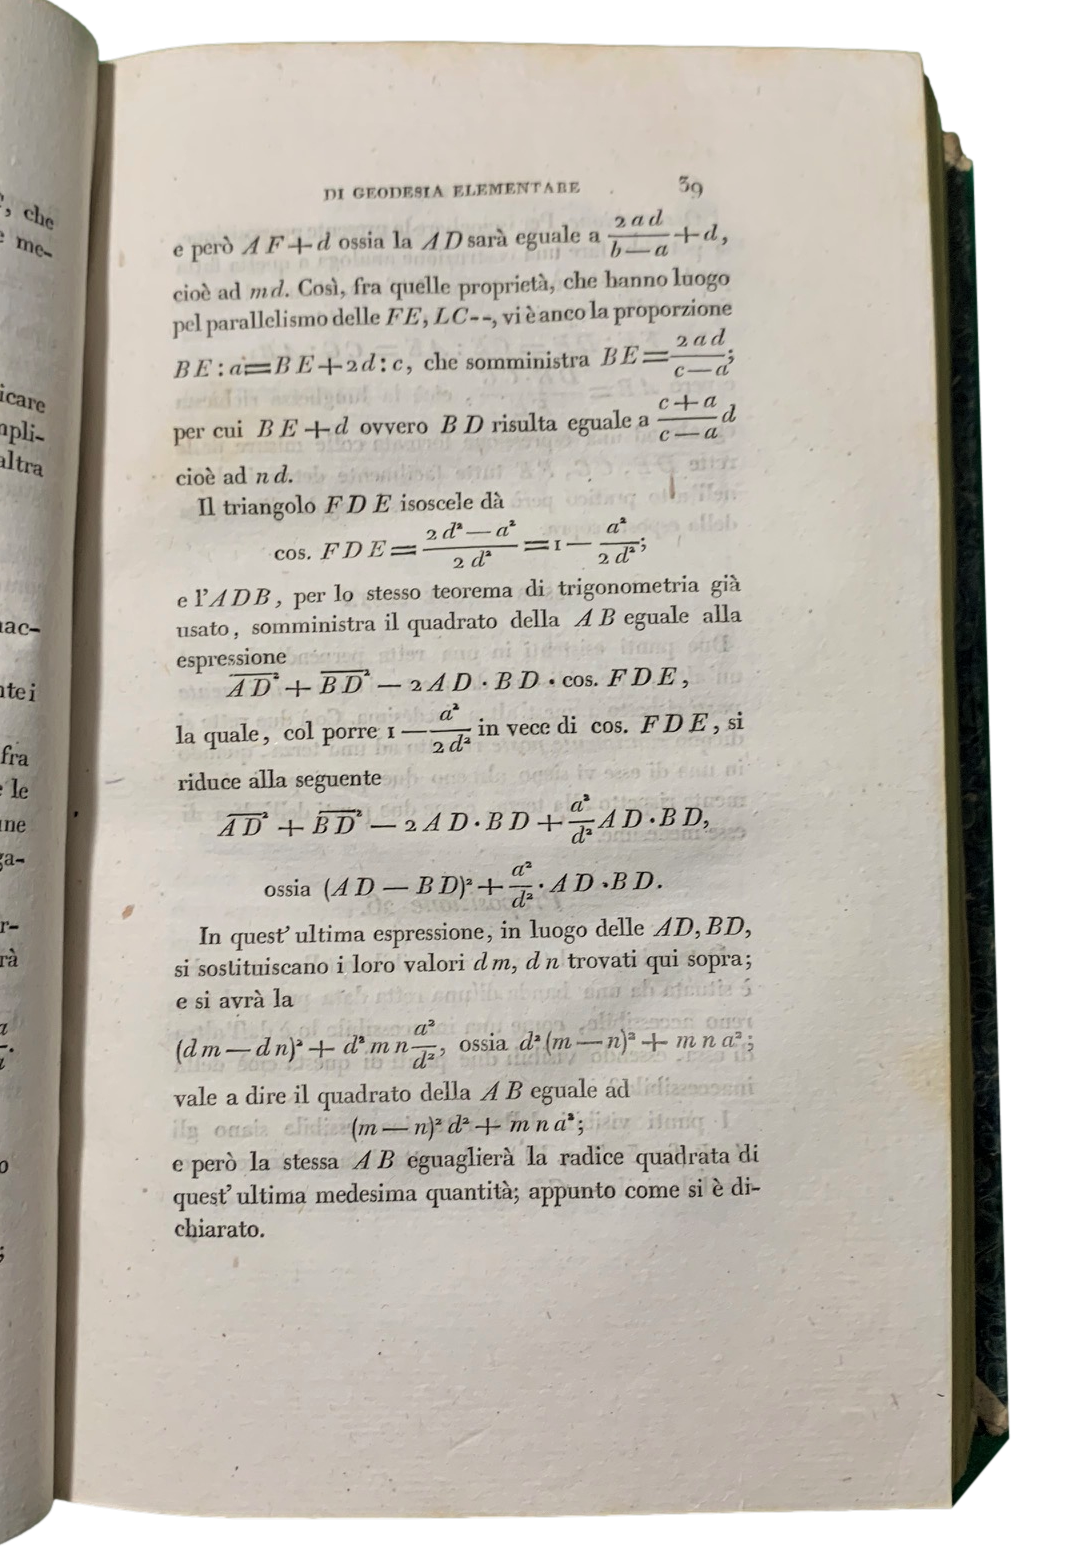 , che
me-
icare
mpli-
altra
nac-
ntei
fra
le
ne
ga-
r-
rà
DI GEODESIA ELEMENTARE 39
e però A F + d ossia la A D sarà eguale a 2 a d / b — a + d,
cioè ad m d. Così, fra quelle proprietà, che hanno luogo
pel parallelismo delle F E, L C--, vi è anco la proporzione
B E : a = B E + 2 d : c, che somministra B E = 2 a d / c — a ;
per cui B E + d ovvero B D risulta eguale a c + a / c — a d
cioè ad n d.
Il triangolo F D E isoscele dà
cos. F D E = 2 d² — a² / 2 d² = 1 — a² / 2 d² ;
e l'A D B, per lo stesso teorema di trigonometria già
usato, somministra il quadrato della A B eguale alla
espressione
A̅D̅² + B̅D̅² — 2 A D · B D · cos. F D E,
la quale, col porre 1 — a² / 2 d² in vece di cos. F D E, si
riduce alla seguente
A̅D̅² + B̅D̅² — 2 A D · B D + a² / d² A D · B D,
ossia (A D — B D)² + a² / d² · A D · B D.
In quest' ultima espressione, in luogo delle A D, B D,
si sostituiscano i loro valori d m, d n trovati qui sopra;
e si avrà la
(d m — d n)² + d² m n a² / d², ossia d² (m — n)² + m n a²;
vale a dire il quadrato della A B eguale ad
(m — n)² d² + m n a²;
e però la stessa A B eguaglierà la radice quadrata di
quest' ultima medesima quantità; appunto come si è di-
chiarato.